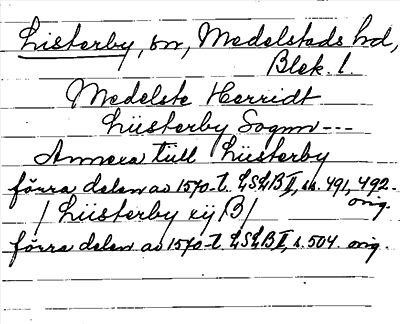 Listerby, sn, Medelstads hd,
Blek. l.
Medelste Herridt
Lüsterby Sognn---
Annexa tüll Lüsterby
förra delen av 1570-t. LSLB II, s. 491, 492. orig.
/ Lüsterby xij B /
förra delen av 1570-t. LSLB II, s. 504. orig.